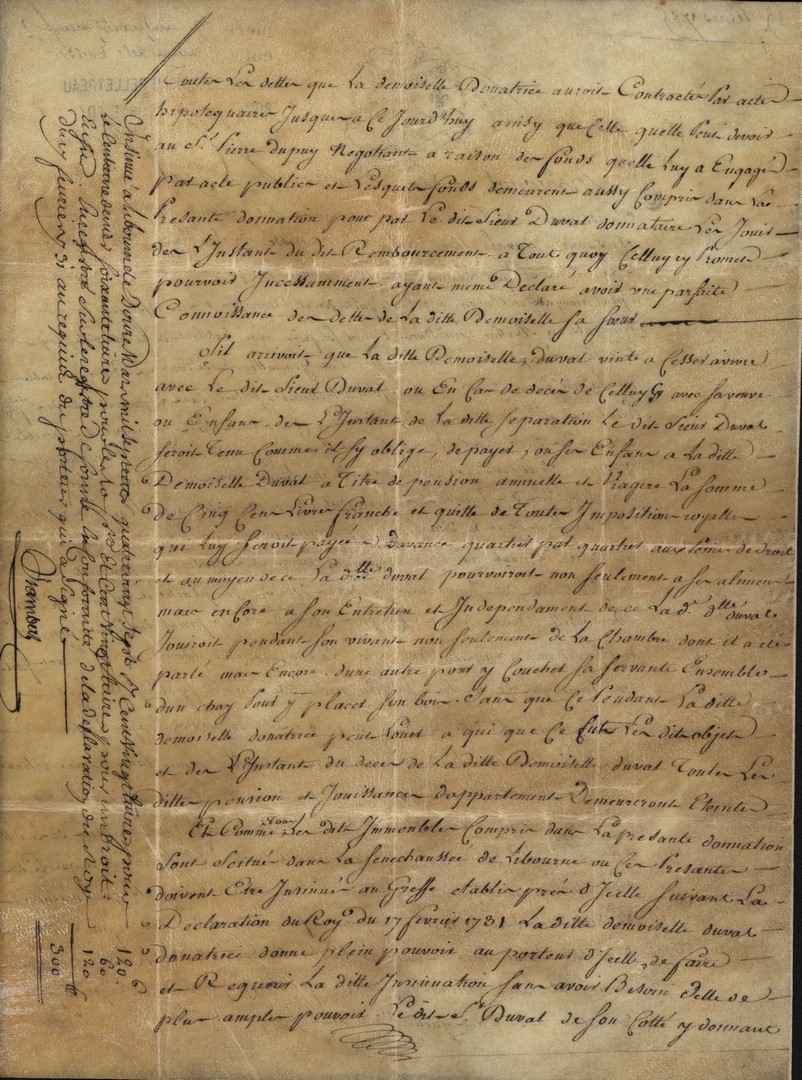 toutes Les dettes que La demoiselle Donatrice auroit Contracté Par acte
hipotequaires Jusques a Ce Jourd'huy ainsy que Celle quelle peut devoir
au Sr. Pierre dupuy Negotiant a raison des fonds quelle Luy a Engagé
Par acte publicq et Lesquels fonds demeurent aussy Compris dans La
Presante donnation pour par Le dit Sieur Duval donnataire Les Jouir
des L'Instant du dit Rembourcement a Tout quoy Celluy cy Promet
pourvoir Incessamment ayant meme Declaré avoir une parfaite
Connoissance des dettes de La ditte Demoiselle sa sœur
Sil arrivoit que La ditte Demoiselle duval vinte a Cesser a vivre
avec Le dit Sieur Duval ou En Cas de decés de Celluy Cy avec sa veuve
ou Enfans des L'Instant de La ditte separation Le dit Sieur Duval
seroit Tenu Comme il sy oblige, de payer, ou ses Enfans a La ditte
Demoiselle Duval a Titre de pension annuelle et Viagere La somme
de Cinq Cens Livres franche et quitte de Toutes Imposition royalle
qui Luy seroit payée Davance quartier par quartier aux termes de droit
et au moyen de ce La dtte dlle duval pourvoiroit non seulement a ses alimens
mais encore a son Entretien et Independament de ce La d. dlle duval
Jouiroit pendant son vivant non seulement de La Chambre dont il a été
parlé mais Encore dune autre pour y Coucher sa servante Ensemble
dun chay Pour y placer son bois sans que Ce Pendant La ditte
demoiselle donatrice peut Louer a qui que Ce fut Les dits objets
et des L'Instant du decés de La ditte Demoiselle duval Toutes Les
dittes pension et Jouissances d'appartement Demeureront Eteintes
Et Comme Tous Les dits Immeubles Compris dans La presante donnation
Sont scitués dans La Senechaussée de Libourne ou Ces Presantes
doivent Etre Insinués au Greffe etablis prés d'Icelle suivant La
Declaration du Roy du 17 fevrier 1731 La ditte demoiselle duval
donatrice donne plein pouvoir au porteur d'Icelle de faire
et Requerir La ditte Insinuation sans avoir Besoin d'elle de
plus amples pouvoir. Le dit Sr. Duval de son Cotté y donnant
Insinué a Libourne Le Douze Mars mil sept cents quatre vingt sept R. Cent vingt livres pour
le Centieme denier soixante livres pour les 10 s. p. L. et Cent vingt livres pour un droit
Enregistré sur Le registre de forme En Conformité de La declaration du Roy
du 17 fevrier 31 au requis du porteur qui a signé
120
60
120
300